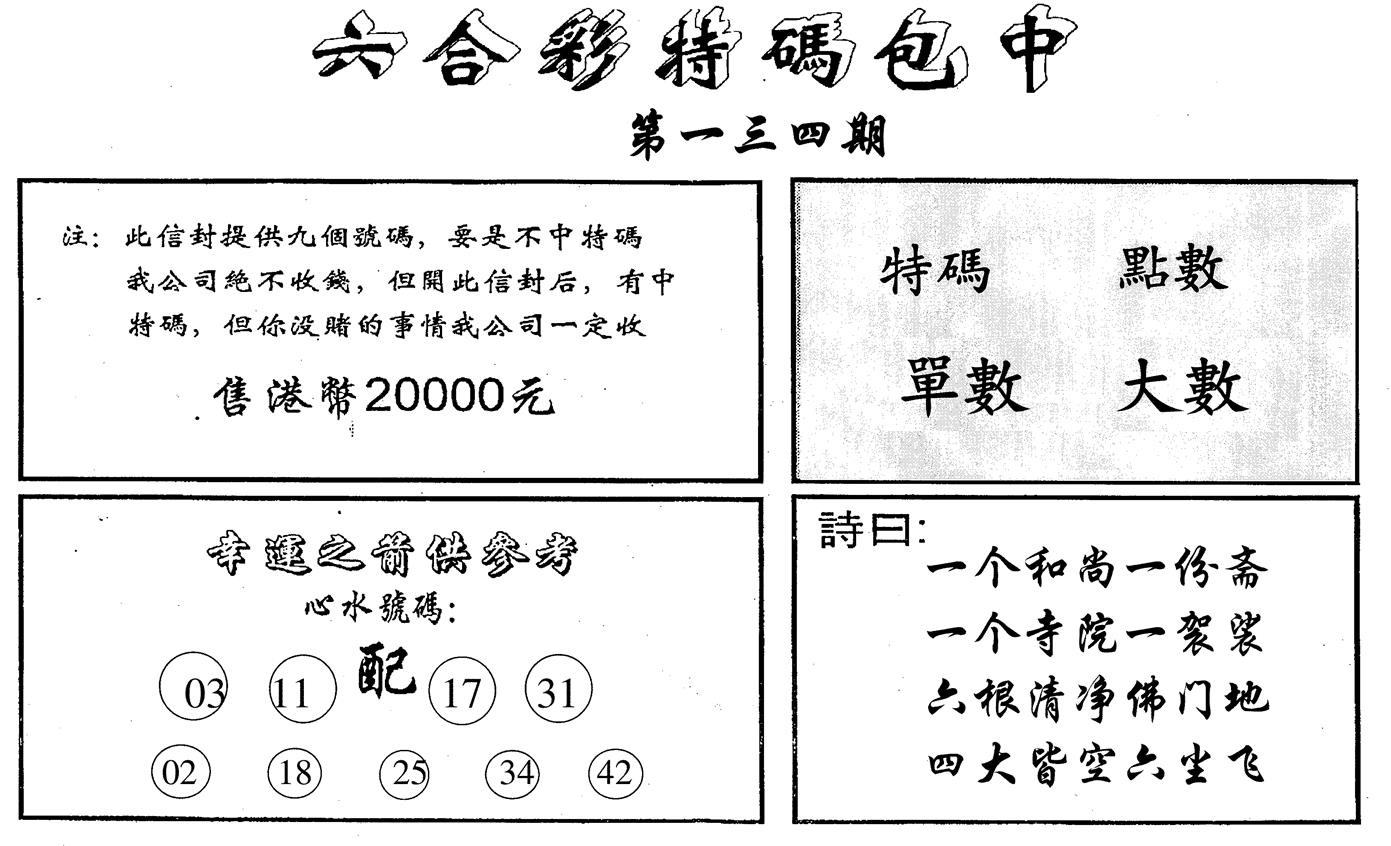 六合彩特碼包中
第一三四期
注：此信封提供九個號碼，要是不中特碼
我公司絶不收錢，但開此信封后，有中
特碼，但你没賭的事情我公司一定收
售港幣20000元
特碼 點數
單數 大數
幸運之箭供參考
心水號碼：
03 11 配 17 31
02 18 25 34 42
詩曰：
一个和尚一份斋
一个寺院一袈裟
六根清净佛门地
四大皆空六坐飞